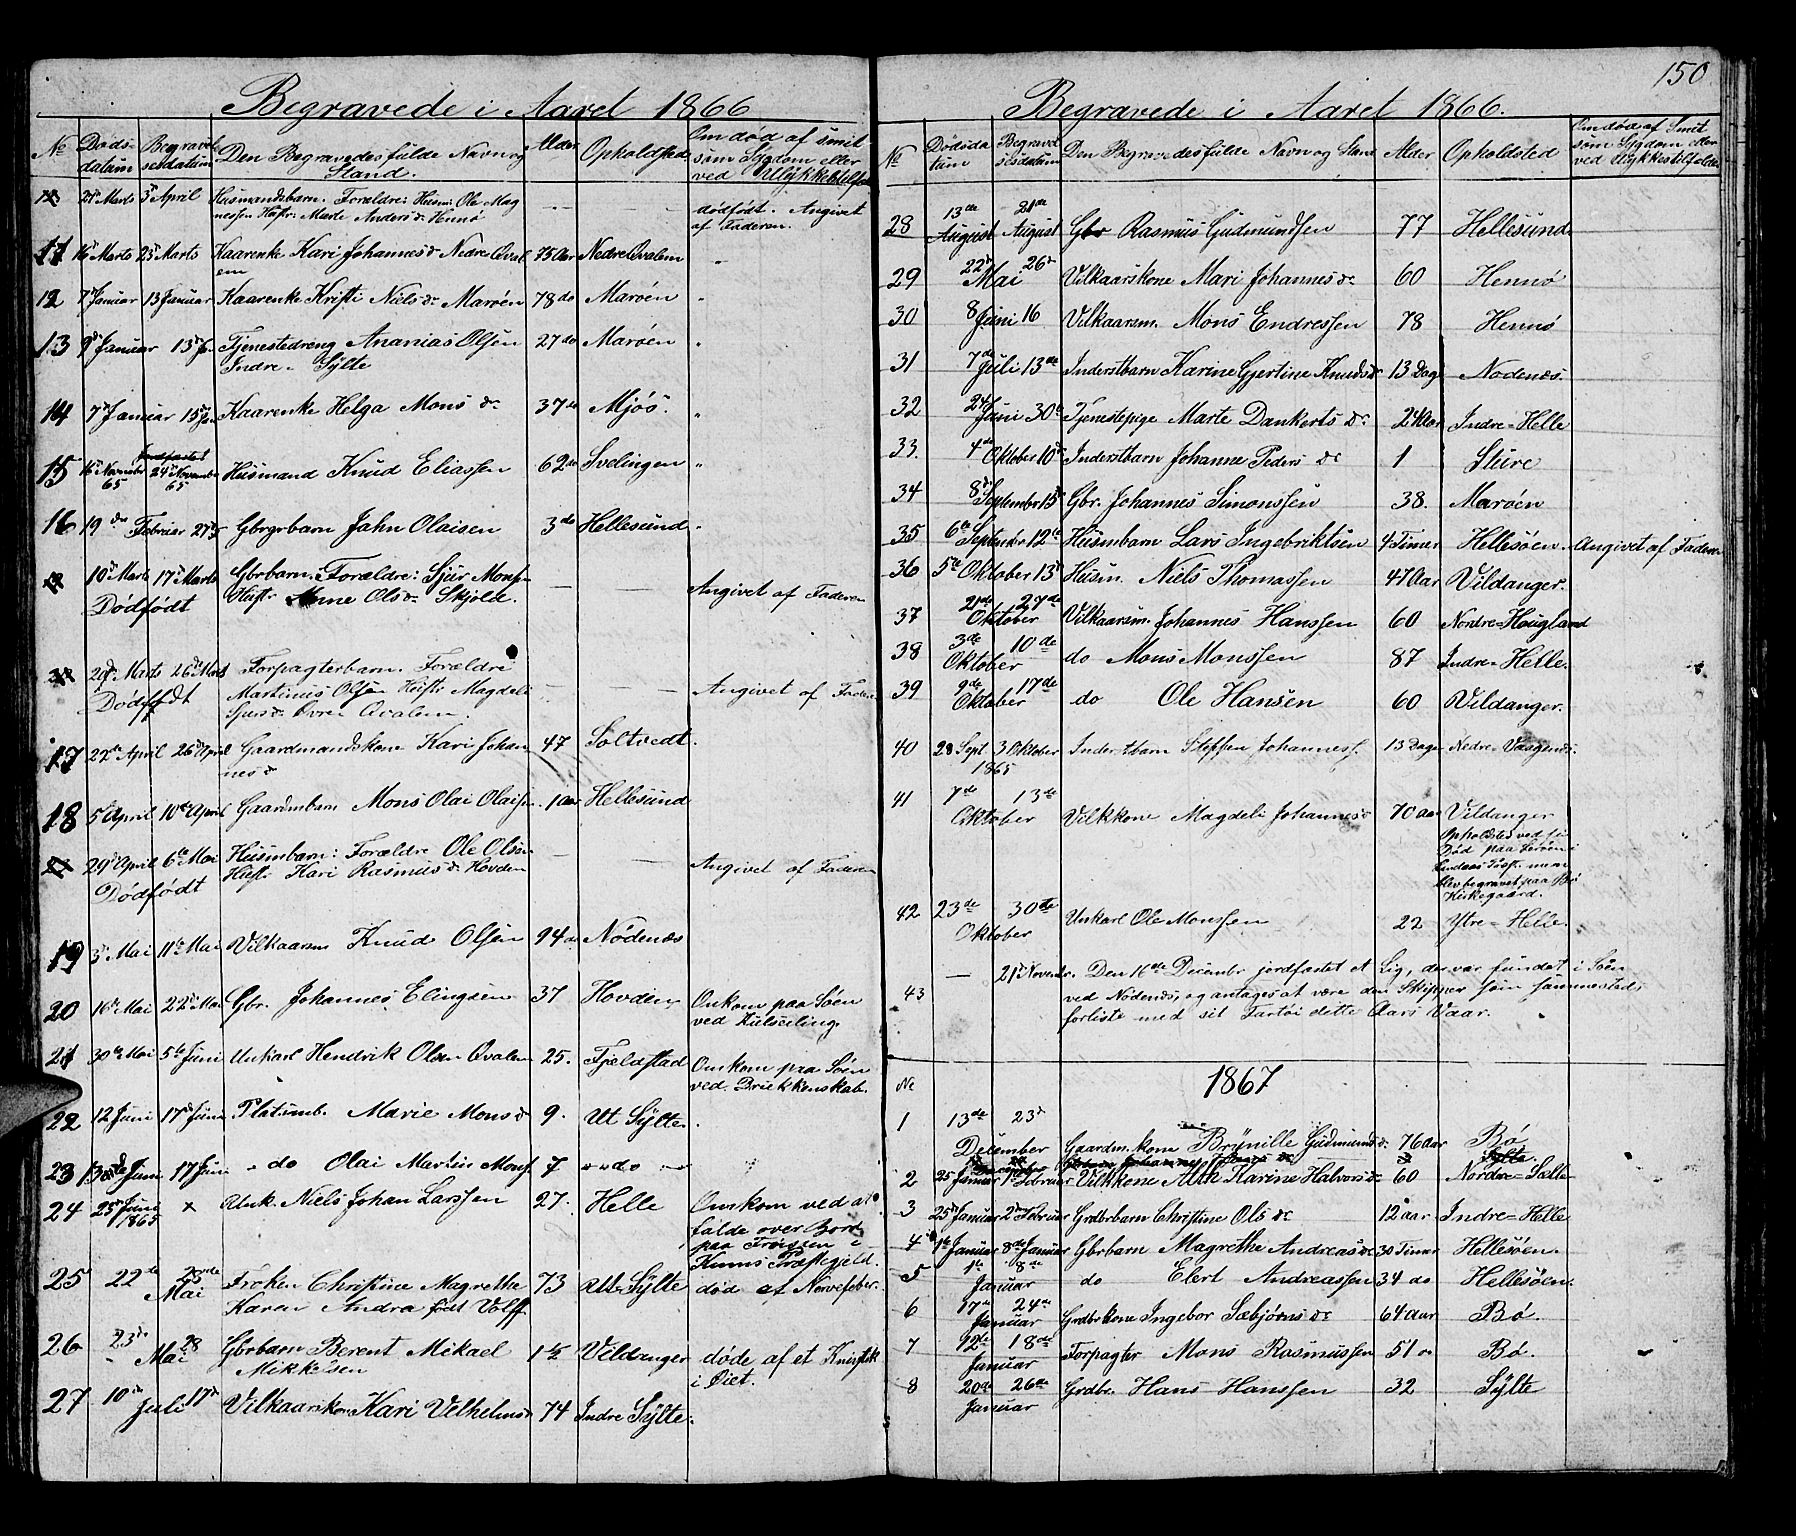 Begravede i Aaret 1866
No Døds-datum Begravelsesdatum Den Begravedes fulde Navn og Stand. Alder Opholdsted Om død af smitsom Sygdom eller ved Ulykkestilf.
21 Marts 3 April Husmandsbarn. Forældre: Husm. Ole Magnessen Hustr. Marte Anders Dr Hennø — — dødfødt. Angivet af Faderen.
11 16 Marts 23 Marts Kaarenke Kari Johannes Dr Nedre Qvalem 75 Aar Nedre Qvalem "
12 7 Januar 13 Januar Kaarenke Kristi Niels Dr Marøen 78 do Marøen "
13 9 Januar 13 Ja. Tjenestedreng Ananias Olsen Indre-Sylte 27 do Marøen "
14 7 Januar 15 Jan Kaarenke Helga Mons Dr 37 do Mjøs. "
15 16 Novmbr 65 Jordfæstet 24 Novembr 65 Husmand Knud Eliassen 62 do Svelingen "
16 19de Februar 27 Gbrgrbarn Jahn Olaisen 3 do Hellesund "
10 Marts 17 Marts Gbrbarn: Forældre: Sjur Monsen Hustr. Anne Ols Dr Skjold. — — Angivet af Faderen
Dødfødt
20 Marts 26 Marts Forpagterbarn. Forældre Martinus Olsen Hustr Magdeli Sjurs Dr Øvre Qvalem. — — Angivet af Faderen
Dødfødt
17 22de April 26 April Gaardmandskone Kari Johannes Dr 47 Soltvedt.
18 5 April 10de April Gaardmbarn Mons Olai Olaisen 1 Aar Hellesund
29 April 6te Mai Husmbarn: Forældre Ole Olsen Hustr Kari Rasmus Dr Hovden — — Angivet af Faderen
Dødfødt
19 3 Mai 11te Mai Vilkaarsm Knud Olsen 94 do Nødenæs
20 16de Mai 22de Mai Gbr. Johannes Elingsen 37 Hovden Omkom paa Søen ved Kulseiling.
21 30te Mai 5te Juni Unkarl Hendrik Olsen Qvalem 25. Fjeldstad Omkom paa Søen ved Drukkenskab.
22 12 Juni 17de Juni Platsmb. Marie Mons Dr 9. Ut Sylte
23 13de Juni 17 Juni " do Olai Martin Mons. 7 " do "
24 25 Juni 1865 x Unk. Niels Johan Larssen 27. Helle Omkom ved at falde over Bord paa Trossen i Kinns Præstegjeld.
25 22de Mai Frøken Christine Magrethe Karen Andra født Volff 73 Utt-Sylte død af Nervefeber.
26 23 Mai 28 Gbrbarn Berent Mikael Mikkelsen 1½ Vildanger døde af et Knivstik i Øiet.
27 10de Juli 17 Vilkaarskone Kari Velhelms Dr 74 Indre Sylte.
150
Begravede i Aaret 1866.
No Dødsdatum Begravelsesdatum Den Begravedes fulde Navn og Stand Alder Opholdsted Om død af Smitsom Sygdom eller ved Ulykkestilfælde
28 13de August 21de August Gbr Rasmus Gudmundsen 77 Hellesund
29 22 Mai 26 Vilkaarskone Mari Johannes Dr 60 Hennø
30 8 Juni 16 Vilkaarsm. Mons Endressen 78 Hennø
31 7de Juli 13de Inderstbarn Karine Gjertine Knuds Dr 13 Dage Nodenæs.
32 24 Juni 30te Tjenestepige Marte Dankerts Dr 24 Aar Indre-Helle
33. 4de Oktober 10 Inderstbarn Johanne Peders Dr 1 Sture
34 8 September 15 Gbr. Johannes Simonssen 38. Marøen
35 6te September 12te Husmbarn Lars Ingebriktsen 4 Timer Hellesøen. Angivet af Faderen
36 5te Oktober 13 Husm. Niels Thomassen 47 Aar Vildanger.
37 21de Oktober 27de Vilkaarsm. Johannes Hanssen 60 Nordre-Hougland
38 3de Oktober 10de do Mons Monssen 87 Indre-Helle.
39 9de Oktober 17de do Ole Hansen 60 Vildanger.
40 28 Sept 3 Oktober 1865 Inderstbarn Steffen Johannes. 13 Dage Nedre-Vaagenes.
41 7de Oktober 13de Vilkkone Magdeli Johannes Dr 70 Aar Vildanger
Opholdtes ved sin Død paa i Lindaas Præstegj. men blev begravet paa Bø Kirkegaard.
42 23de Oktober 30te Unkarl Ole Monssen 22 Ytre-Helle.
43 — 21 Novembr. Den 16de Decembr jordfæstet et Lig, der var fundet i Søen ved Nødenæs, og antages at være den Skipper som sammesteds forliste med sit Fartøi dette Aars Vaar.
1867
No
1 13de December 23 Gaardm.kone Brynille Gudmunds Dr 76 Aar Bø
2 25 Januar 1te Februar Vilkkone Alth Karine Halvors Dr 60 Nordre-Sælte
3 25 Januar 2 Februar Grdbrbarn Christine Ols Dr 12 Aar Indre-Helle
4 1te Januar 8de Januar Gbrbarn Magrethe Andreas Dr 30 Timer Hellesøen.
5 1te Januar 8de do Elert Andreassen 34 do Hellesøen.
6 17de Januar 24de Grdbrkone Ingebor Sæbjørns Dr 64 Aar Bø.
7 12te Januar 18de Forpagter Mons Rasmussen 51 " Bø.
8 20de Januar 26de Grdbr. Hans Hanssen 32 Sylte